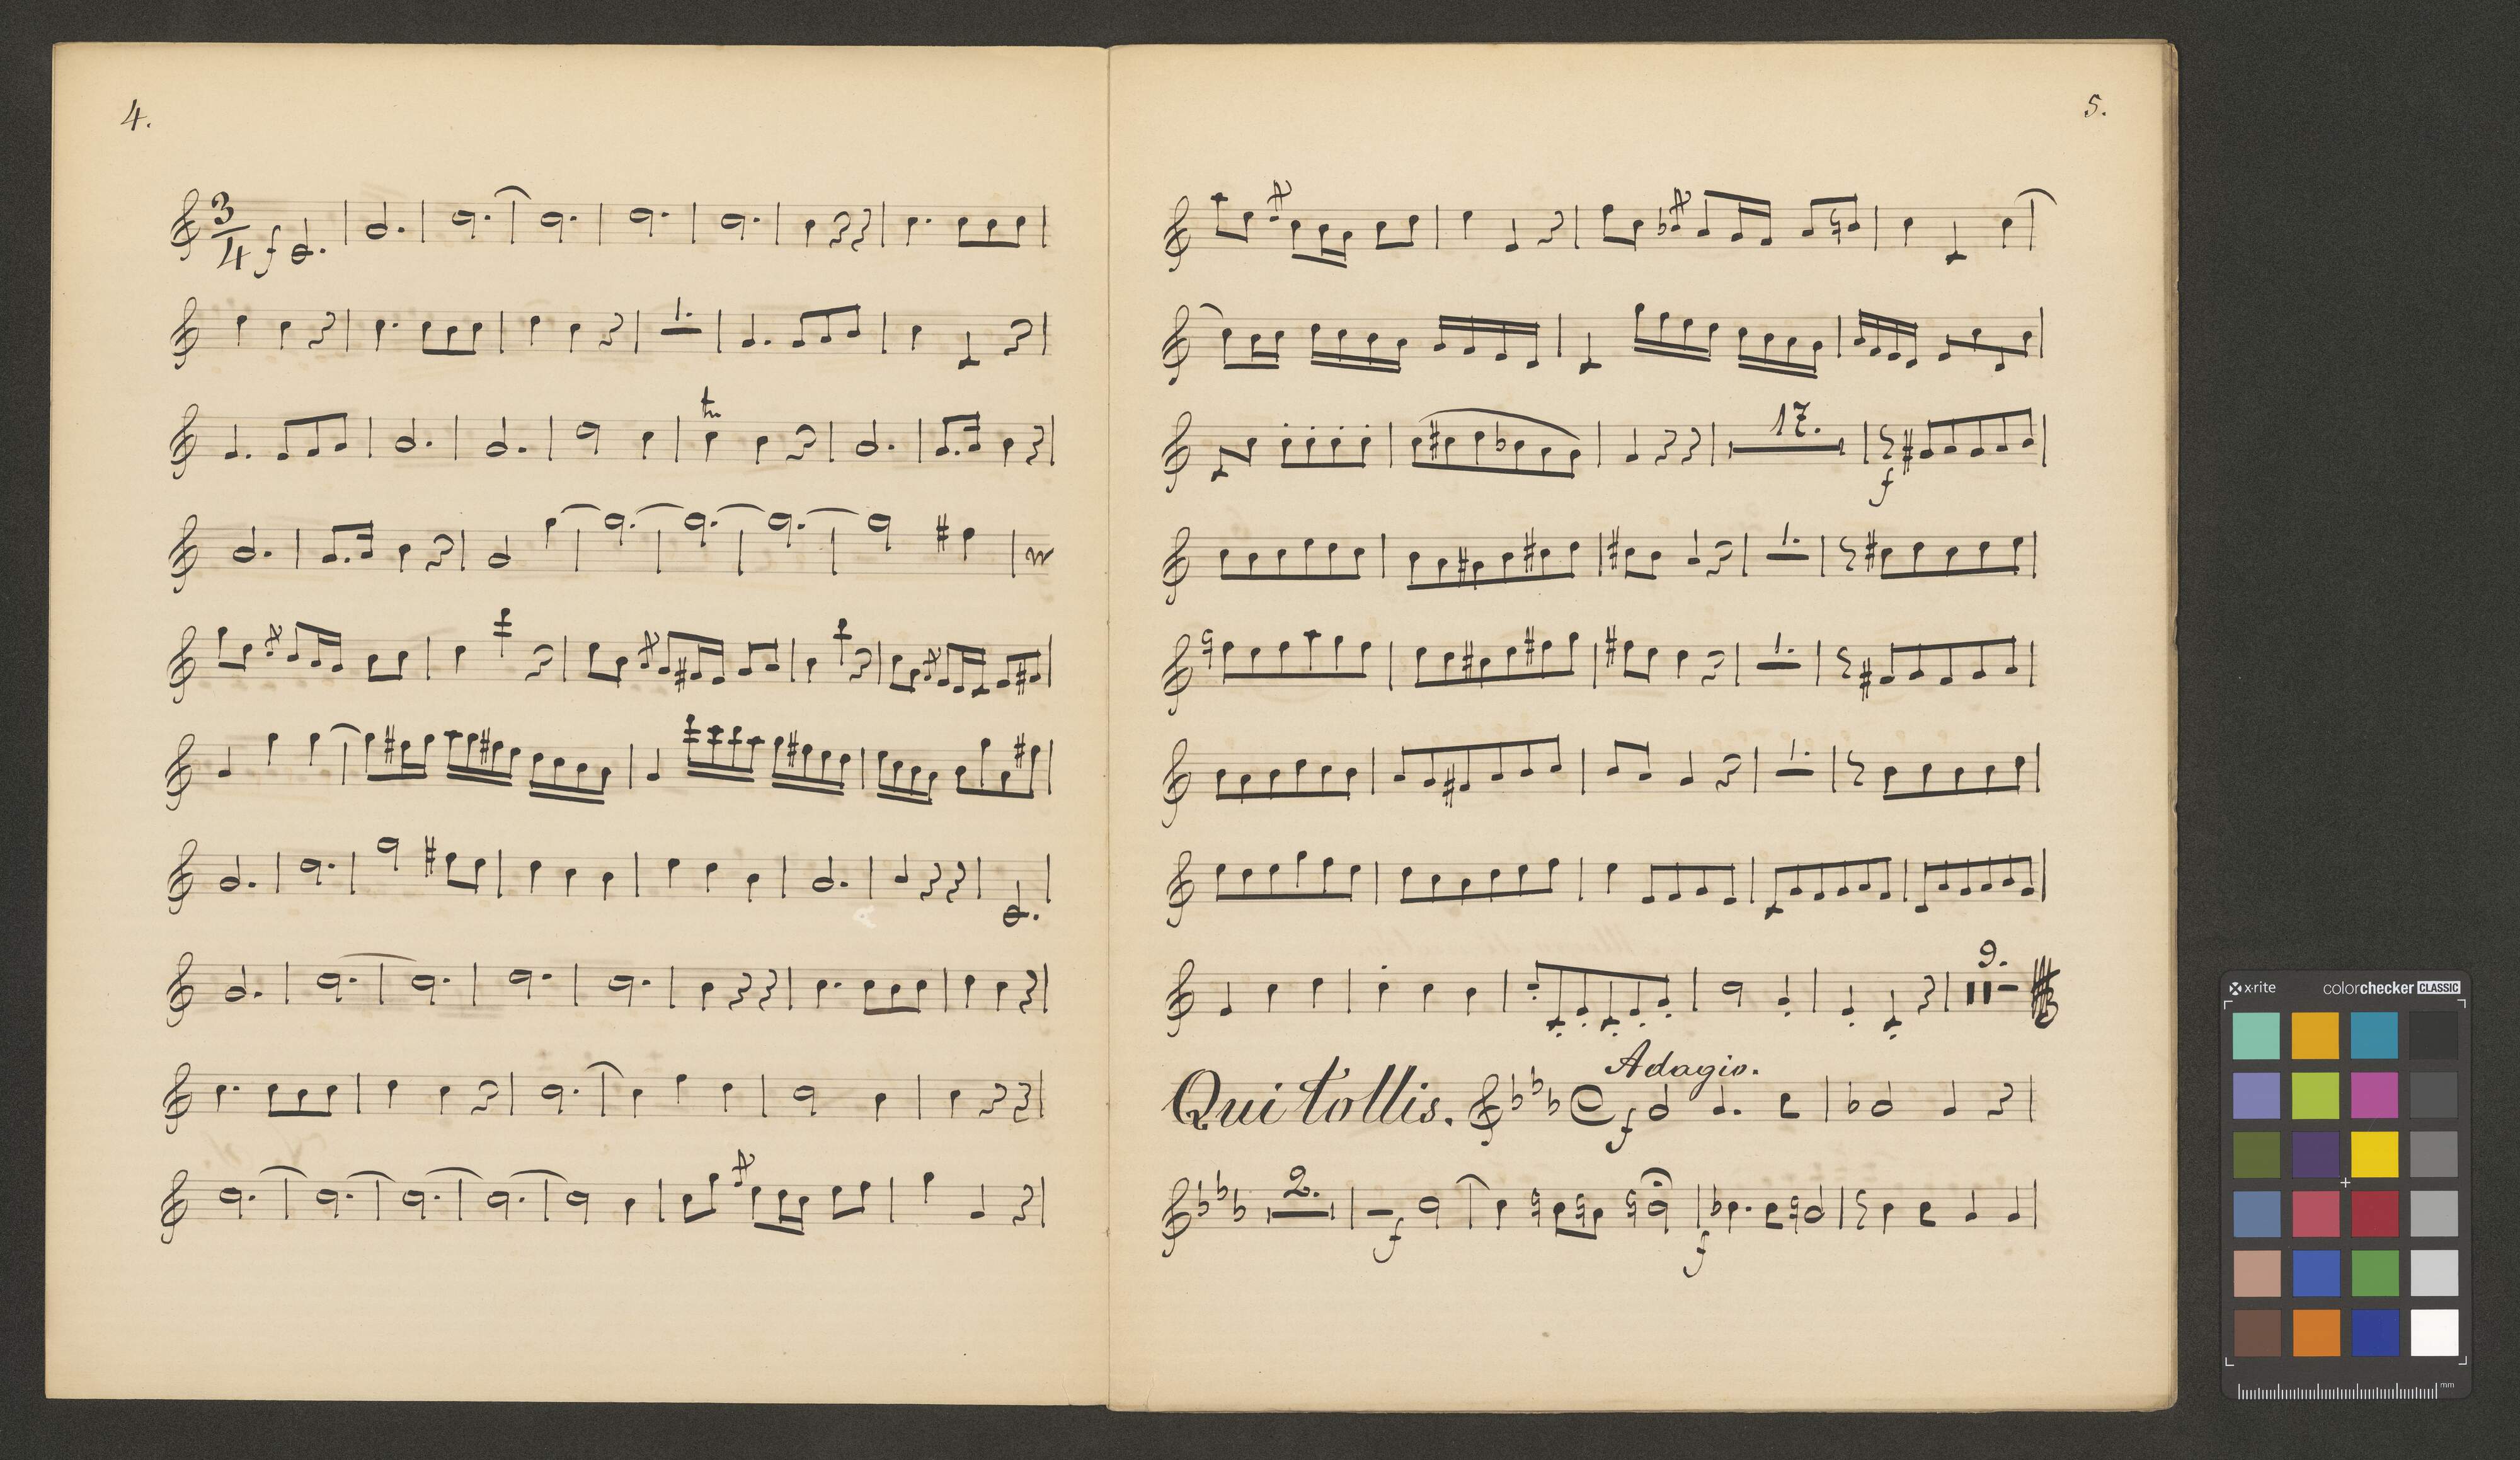 4.
3
4 f
1.
tr
5.
17.
f
1.
1.
1.
9.
Adagio.
Qui tollis. f
2.
f f
x-rite colorchecker CLASSIC
mm